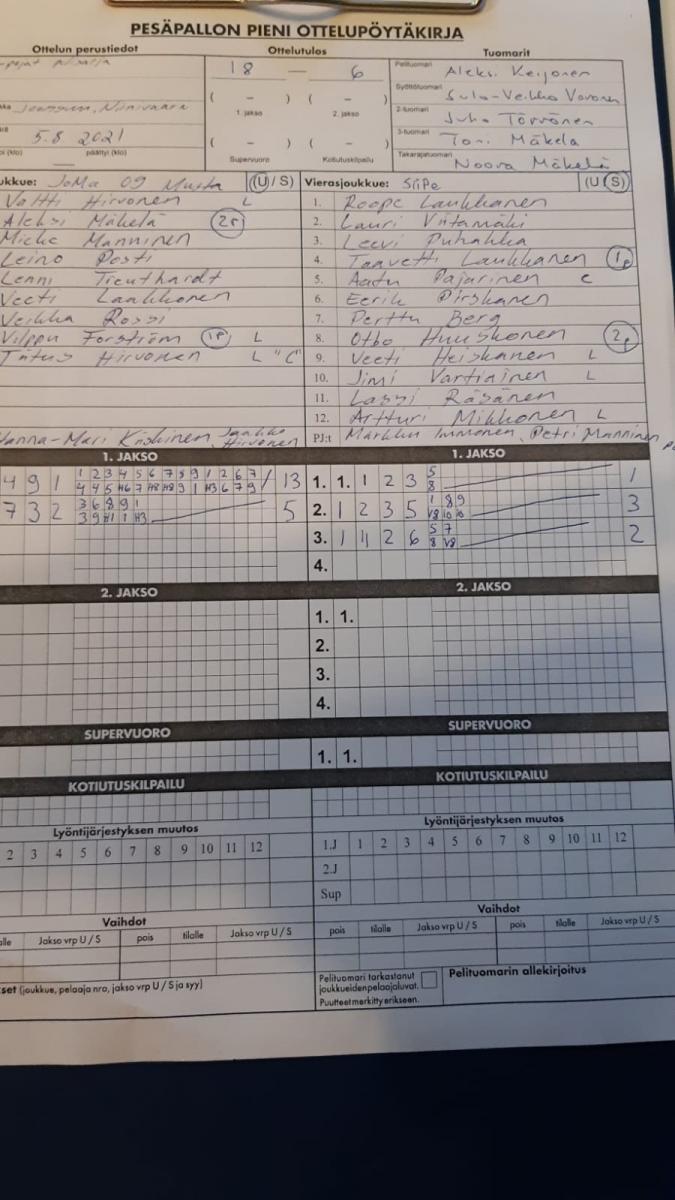 PESÄPALLON PIENI OTTELUPÖYTÄKIRJA
Ottelun perustiedot Ottelutulos Tuomarit
18 — 6
Pelituomari Aleksi Keijonen
Syöttötuomari Sulo-Veikko Vovonen
2-tuomari Juho Törvönen
3-tuomari Toni Mäkelä
Takarajatuomari Noora Mäkelä
( – ) ( – )
1. jakso 2. jakso
( – ) ( – )
Supervuoro Kotiutuskilpailu
Joensuu, Niinivaara
5.8 2021
(klo) päättyi (klo)
ukkue: JoMa 09 Musta (U / S)
Valtti Hirvonen L
Aleksi Mäkelä 2r
Micke Manninen
Leino Posti
Lenni Treuthardt
Veeti Laukkonen
Veikka Rossi
Vilppu Forström 1P L
Titus Hirvonen L "C"
Hanna-Mari Kiiskinen, Jaakko Hirvonen
Vierasjoukkue: SiiPe (U S)
1. Roope Laukkanen
2. Lauri Viitamäki
3. Leevi Puhakka
4. Taavetti Laukkanen 1p
5. Aatu Pajarinen C
6. Eerik Pirskanen
7. Perttu Berg
8. Otto Huuskonen 2p
9. Veeti Heiskanen L
10. Jimi Vartiainen L
11. Lassi Räsänen
12. Artturi Mikkonen L
PJ:t Markku Immonen, Petri Manninen
1. JAKSO 1. JAKSO
4 9 1 1 2 3 4 5 6 7 8 9 1 2 6 7 / 13
4 4 5 H6 7 H8 H8 9 1 H3 6 7 9
1. 1. 1 2 3 5 1
8
7 3 2 3 6 8 9 1 5
3 9 H1 1 H3
2. 1 2 3 5 1 8 9 3
V8 10 10
3. 1 4 2 6 5 7 2
8 V8
4.
2. JAKSO 2. JAKSO
1. 1.
2.
3.
4.
SUPERVUORO SUPERVUORO
1. 1.
KOTIUTUSKILPAILU KOTIUTUSKILPAILU
Lyöntijärjestyksen muutos Lyöntijärjestyksen muutos
2 3 4 5 6 7 8 9 10 11 12 1.J 1 2 3 4 5 6 7 8 9 10 11 12
2.J
Sup
Vaihdot Vaihdot
alle Jakso vrp U / S pois tilalle Jakso vrp U / S pois tilalle Jakso vrp U / S pois tilalle Jakso vrp U / S
set (joukkue, pelaaja nro, jakso vrp U / S ja syy)
Pelituomari tarkastanut
joukkueidenpelaajaluvat.
Puutteet merkitty erikseen.
Pelituomarin allekirjoitus